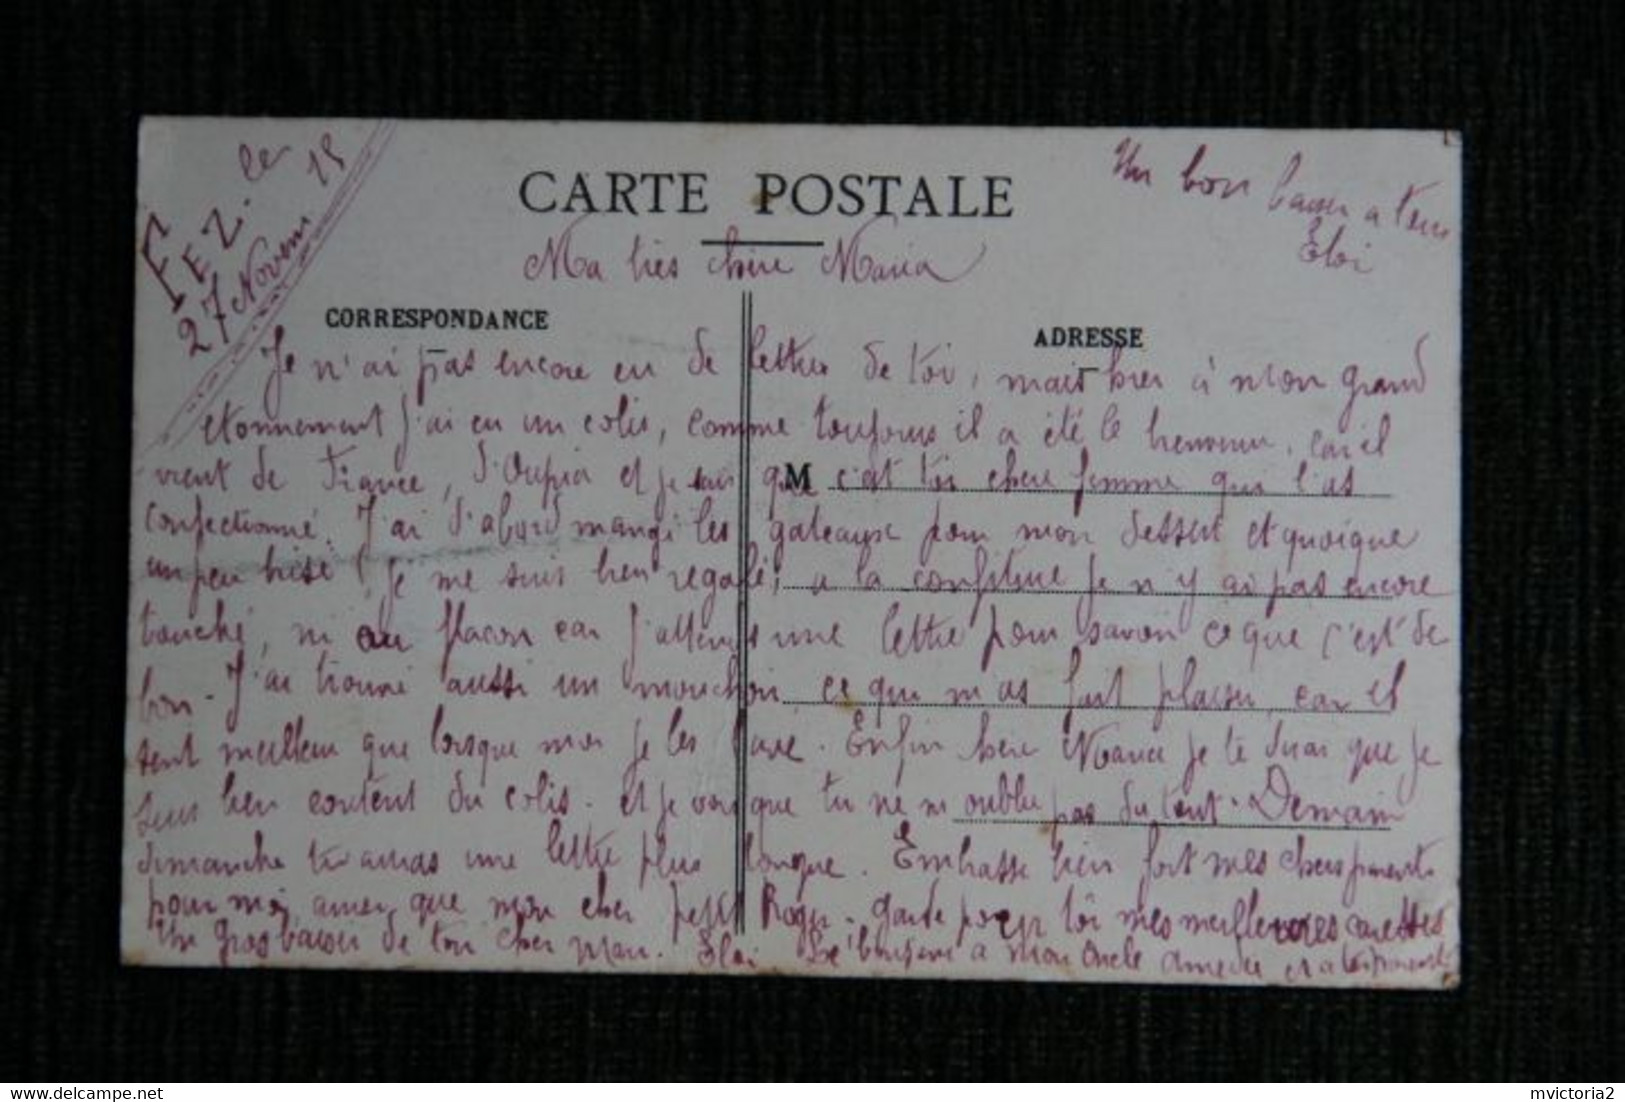 Fez. le
27 Novem 15
CARTE POSTALE
Un bon baiser a tous
Eloi
Ma très chère Maria
CORRESPONDANCE
ADRESSE
Je n'ai pas encore eu de lettre de toi, mais hier à mon grand
etonnement j'ai eu un colis, comme toujours il a été le bienvenu, car il
vient de France, d'Oupia et je sais que c'est toi chere femme qui l'as
M
confectionné. J'ai d'abord mangé les gateaux pour mon dessert et quoique
un peu brisé, je me suis bien regalé, a la confiture je n'y ai pas encore
touché, ni au flacon car j'attends une lettre pour savoir ce que c'est de
bon. J'ai trouvé aussi un mouchoir, ce qui m'as fait plaisir, car il
sent meilleur que lorsque moi je les lave. Enfin chere Maria je te dirai que je
suis bien content du colis. et je vois que tu ne m oublie pas du tout. Demain
dimanche tu auras une lettre plus longue. Embrasse bien fort mes chers parents
pour moi, ainsi que mon cher petit Roger. garde pour toi mes meilleures caresses
Un gros baiser de ton cher mari. Eloi Le bonjour a mon oncle Amedée et a tes parents
mvictoria2